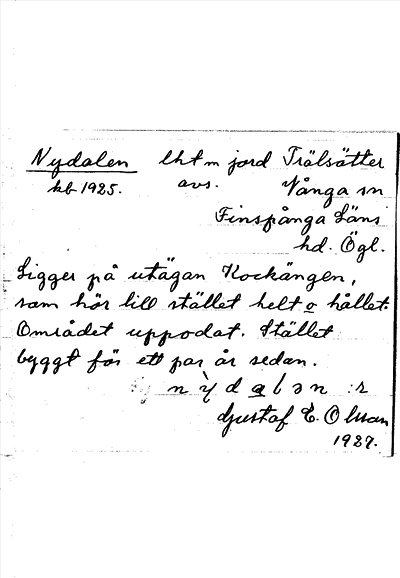 Nydalen lht m jord Trälsätter
kb 1925. avs. Vånga sn
Finspånga Läns
hd. Ögl.
Ligger på utägan Kockängen,
som hör till stället helt o hållet.
Området uppodat. Stället
byggt för ett par år sedan.
Gustaf E. Olson
1927.